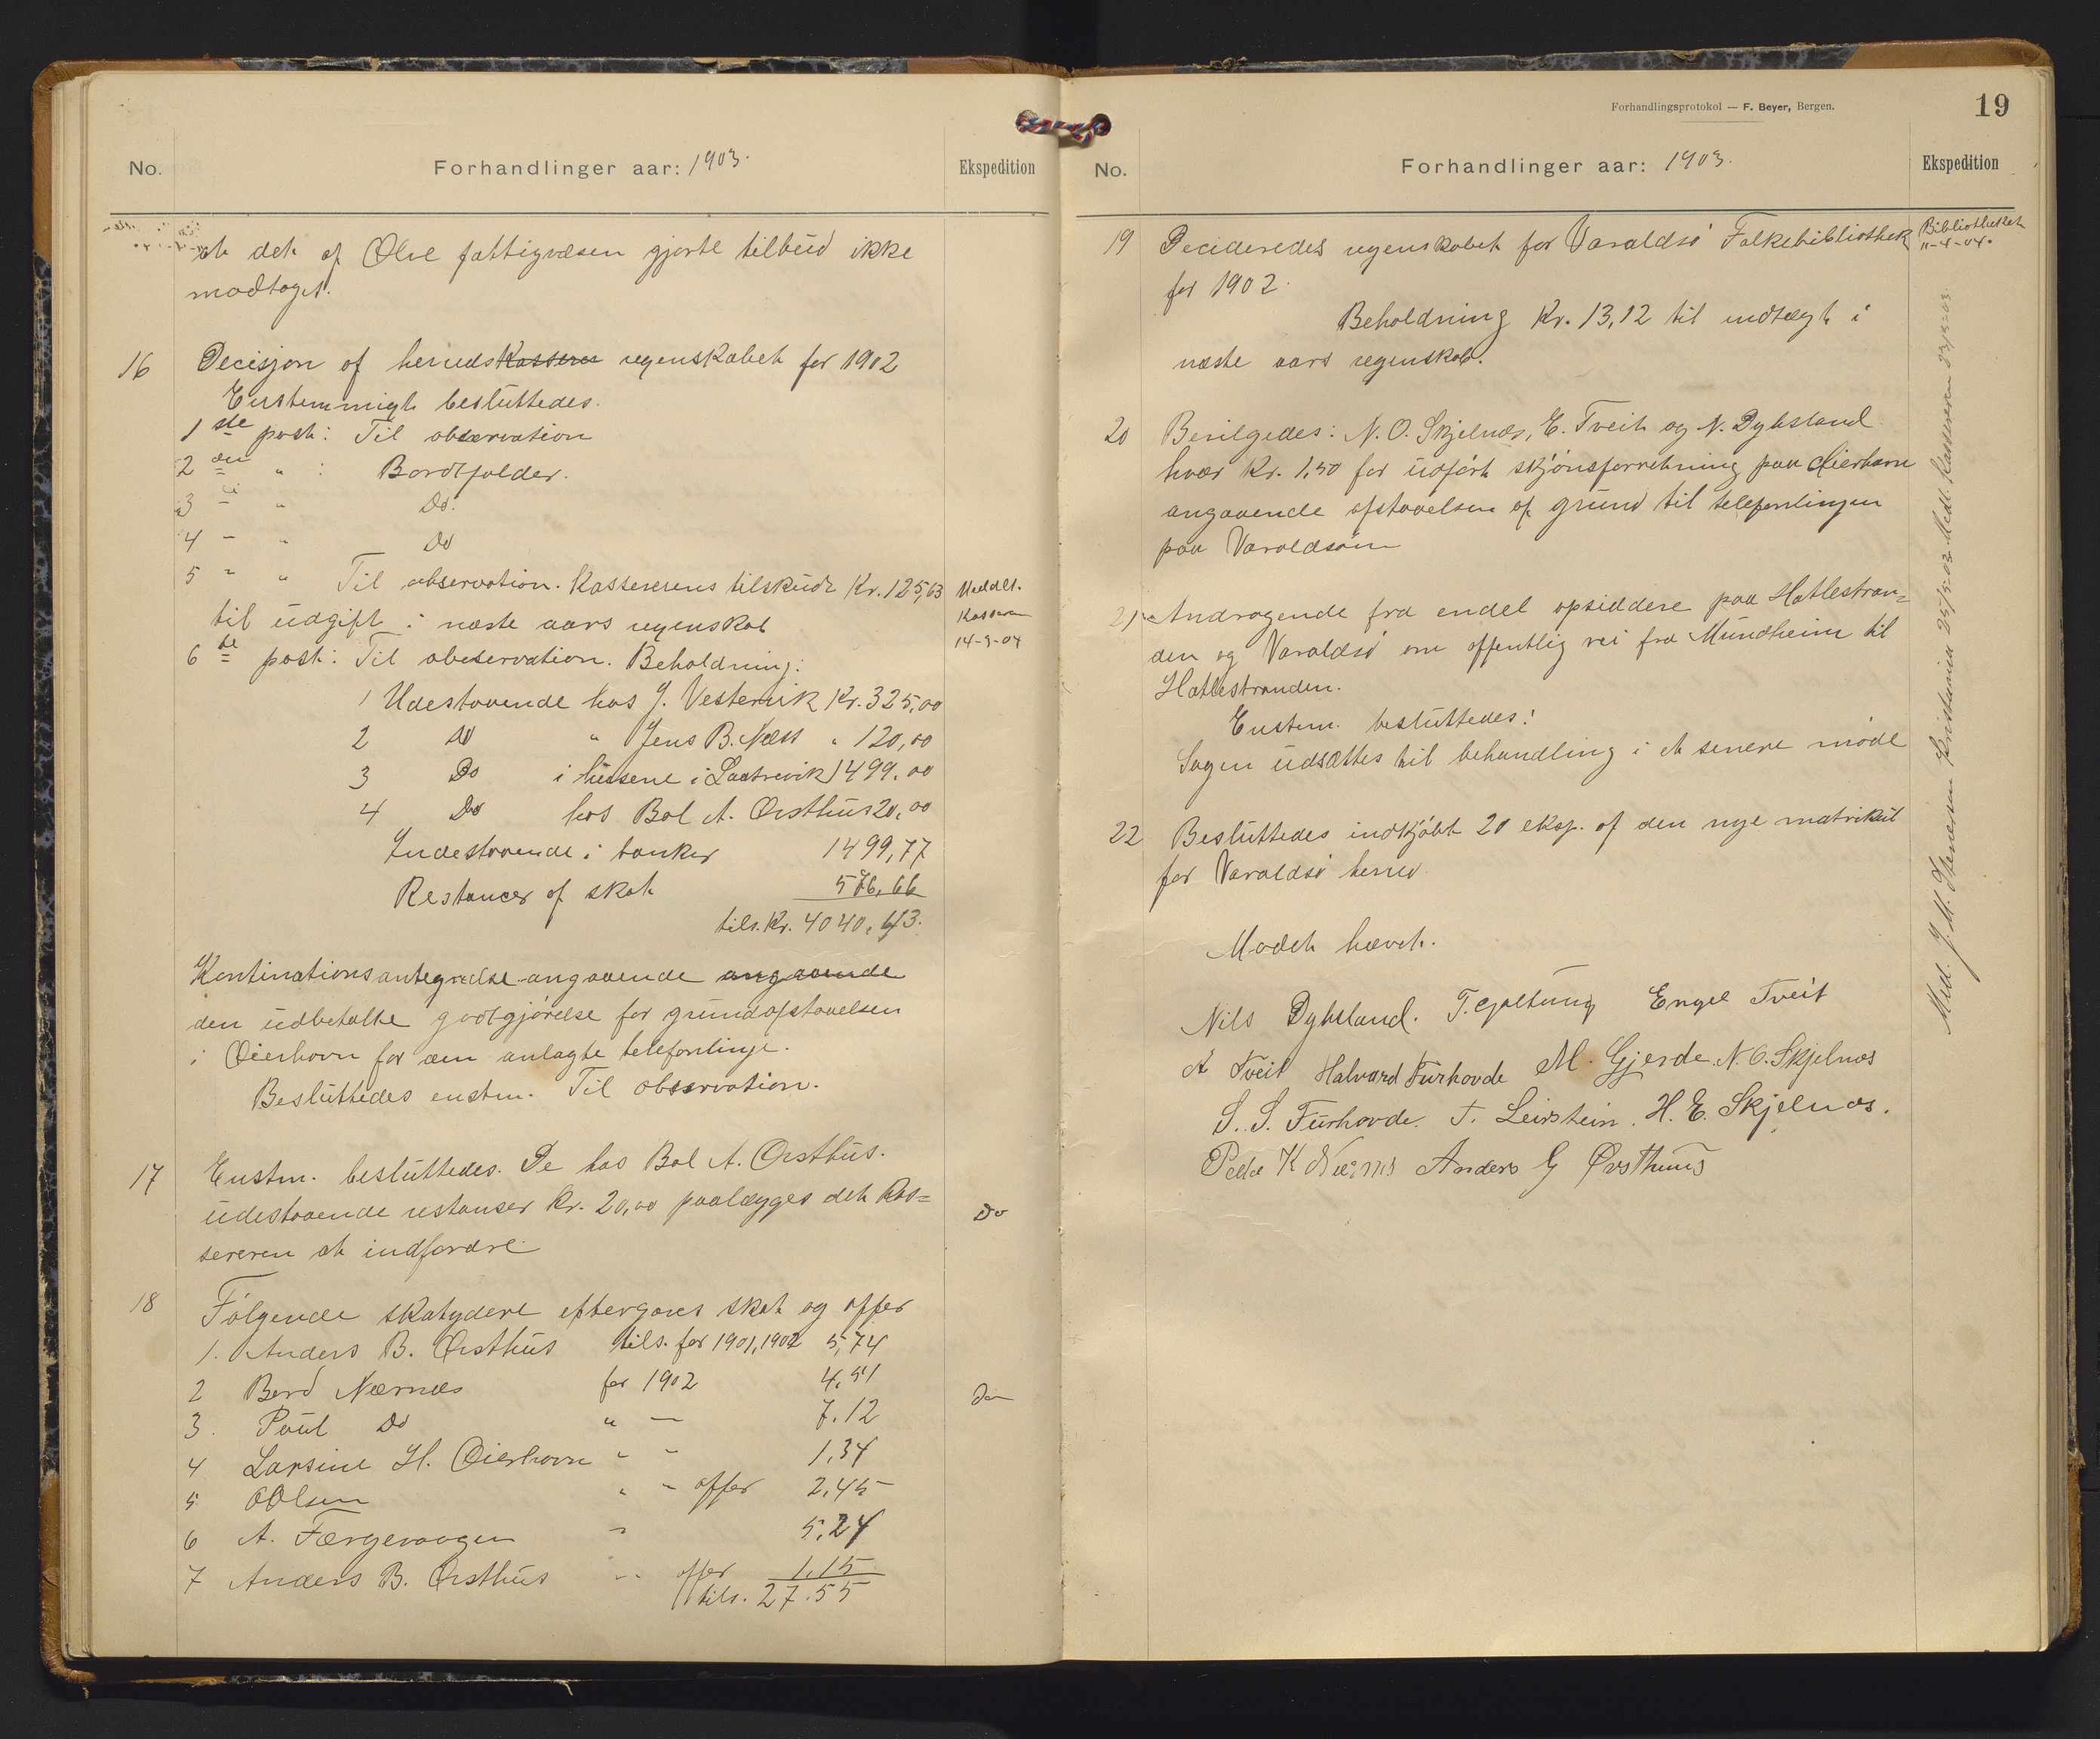 No. Forhandlinger aar: 1903. Ekspedition
at det af Ølve fattigvæsen gjorte tilbud ikke
modtoges.
16 Decisjon af herreds Kasserer regenskabet for 1902
Enstemmigt besluttedes.
1ste post: Til observation
2den " : Bortfalder.
3 - " Do.
4 - " Do
5 - " Til observation. Kassererens tilskud Kr. 125,63 Meddlt. Kasseren 14-3-04
til udgift i næste aars regenskab
6te post: Til observation. Beholdning:
1 Udestaaende hos J. Vestervik Kr. 325,00
2 Do " Jens B. Næss " 120,00
3 Do i husene i Laatrevik 1499,00
4 Do hos Bal A. Ørsthus 20,00
Indestaaende i banker 1499,77
Restancer af skat 576,66
tils. Kr. 4040,43.
Kontinationsantegnelse angaaende angaaende
den udbetalte godtgjørelse for grundafstaaelsen
i Øierhavn for den anlagte telefonlinje.
Besluttedes enstm. Til observation.
17 Enstm. besluttedes. De hos Bal A. Ørsthus.
udestaaende restanser Kr. 20,00 paalægges det Kas= Do
sereren at indfordre
18 Følgende skatydere eftergaves skat og offer
1. Anders B. Ørsthus tils. for 1901, 1902 5,74
2 Berd Nærnes for 1902 4,51 Do
3. Poul Do " — 7.12
4 Larsine H. Øierhavn " - 1,34
5 O Olsen " - offer 2,45
6 A. Færgevaagen " 5,24
7 Anders B. Ørsthus " offer 1.15
tils. 27.55
Forhandlingsprotokol — F. Beyer, Bergen. 19
No. Forhandlinger aar: 1903. Ekspedition
19 Decideredes regenskabet for Varaldsø Folkebibliothek Bibliotheket 11-4-04.
for 1902.
Beholdning Kr. 13,12 til indtægt i
næste aars regenskab.
20 Bevilgedes: N. O. Skjelnæs, E. Tveit og N. Dybsland
hver Kr. 1,50 for udført skjønsforretning paa Øierhavn
angaaende afstaaelsen af grund til telefonlinjen
paa Varaldsøen
21 Andragende fra endel opsiddere paa Hatlestran=
den og Varaldsø om offentlig vei fra Mundheim til
Hatlestranden.
Enstem. besluttedes:
Sagen udsættes til behandling i et senere møde
22 Besluttedes indkjøbt 20 eksp. af den nye matrikul
for Varaldsø herred.
Mødet hævet.
Nils Dybsland. T. Gjeltung Engel Tveit
A Tveit Halvard Furhovde M. Gjerde N. O. Skjelnæs
S. S. Furhovde. T. Leirstein. H. E. Skjelnæs.
Peder K Nernes Anders G Ørsthuus
Med. J. M. Stenersen Kristiania 25/5-03 Medl. Kasseren 23/5-03.